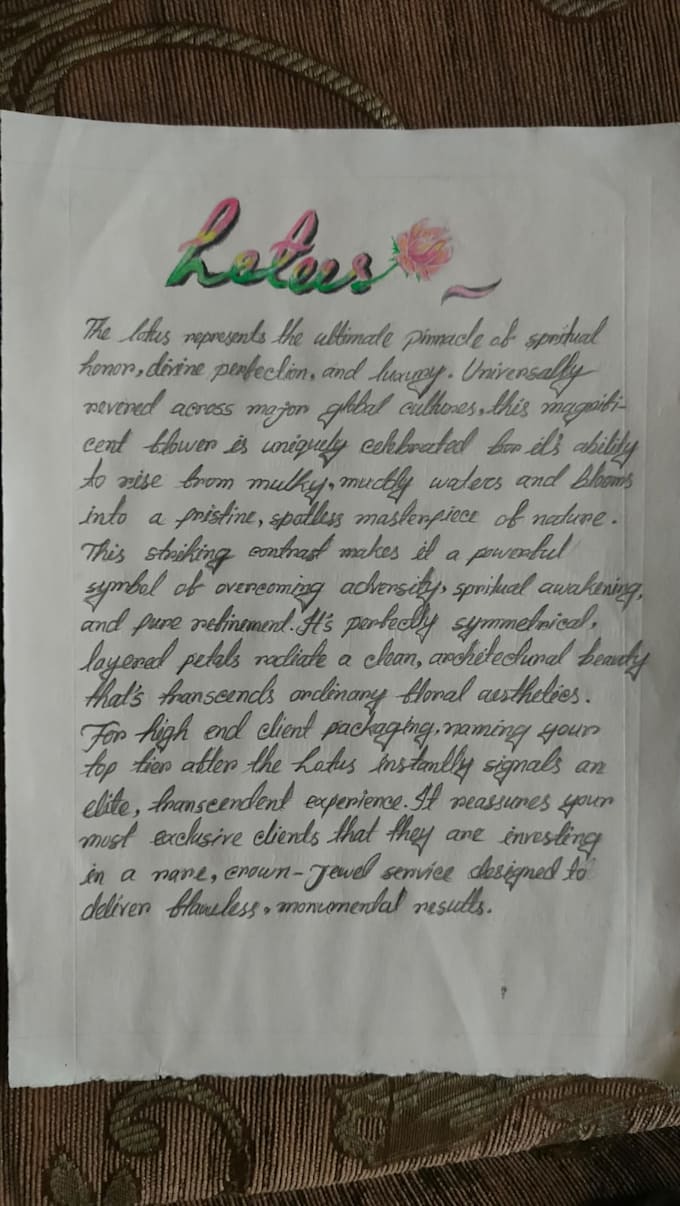 Lotus
The lotus represents the ultimate pinnacle of spritual
honor, divine perfection, and luxury. Universally
revered across major global cultures, this magnifi-
cent flower is uniquely celebrated for it's ability
to rise from mulky, muddy waters and blooms
into a pristine, spotless masterpiece of nature.
This striking contrast makes it a powerful
symbol of overcoming adversity, spritual awakening,
and pure refinement. It's perfectly symmetrical,
layered petals radiate a clean, architectural beauty
that's transcends ordinary floral aesthetics.
For high end client packaging, naming your
top tier after the Lotus instantly signals an
elite, transcendent experience. It reassures your
most exclusive clients that they are investing
in a rare, crown-Jewel service designed to
deliver flawless, monumental results.